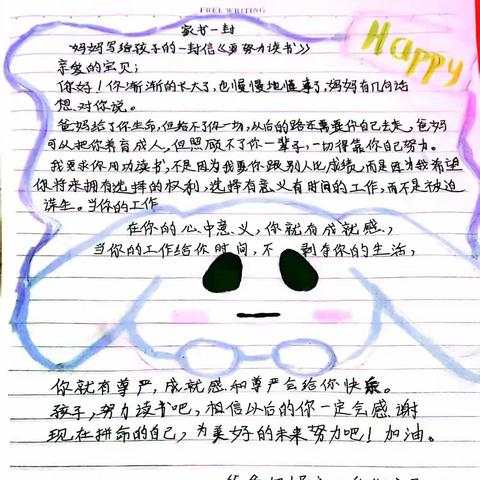 FREE WRITING
家书一封
妈妈写给孩子的一封信《要努力读书》
Happy
亲爱的宝贝：
你好！你渐渐的长大了，也慢慢地懂事了，妈妈有几句话
想对你说。
爸妈给了你生命，但给不了你一切，从后的路还需要你自己去走，爸妈
可以把你养育成人，但照顾不了你一辈子，一切得靠你自己努力。
我要求你用功读书，不是因为我要你跟别人比成绩，而是因为我希望
你将来拥有选择的权利，选择有意义有时间的工作，而不是被迫
谋生。当你的工作
在你的心中意义，你就有成就感，
当你的工作给你时间，不剥夺你的生活，
你就有尊严，成就感和尊严会给你快乐。
孩子，努力读书吧，相信以后的你一定会感谢
现在拼命的自己，为美好的未来努力吧！加油。